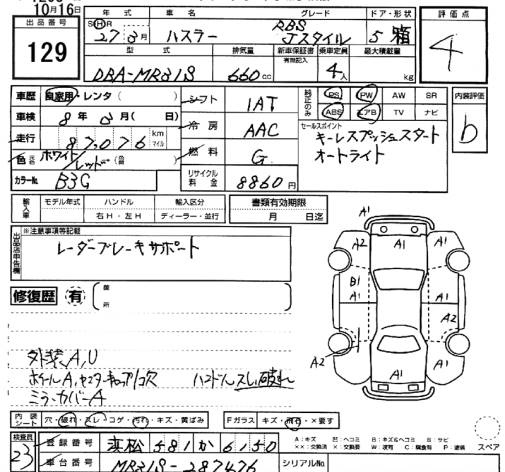 10月16日
出品番号 129
年式 車名 グレード ドア・形状
27 3月 ハスラー RBS Jスタイル 5 箱
型式 排気量 新車保証書 有無記入 乗車定員 最大積載量
DBA-MR31S 660cc 4人 kg
評価点 4
車歴 自家用・レンタ( )
車検 8年 3月( 日)
走行 87,076 km マイル
色 ホワイト レッド
カラーNo. B3G
シフト IAT
冷房 AAC
燃料 G
リサイクル料金 8860円
純正のみ PS PW AW SR
ABS エアB TV ナビ
セールスポイント
キーレスプッシュスタート
オートライト
内装評価 b
輸入車 モデル年式 ハンドル 輸入区分
右H・左H ディーラー・並行
書類有効期限
月 日迄
出品店申告欄 ※注意事項等記載
レーダーブレーキサポート
修復歴 有 箇所
外装A,U
ホイールA,センターキャップ1コ欠 ハンドルスレ,破れ
ミラーカバーA
A1
A2 A1 A1
B1 A1 A1
A2
A2
A1 A1
A1
内装シート 穴・破れ・スレ・コゲ・汚れ・キズ・黄ばみ Fガラス キズ・飛石・×要す
検査員 23
登録番号 浜松 581 か 6150
車台番号 MR31S-287476
A:キズ 凹:ヘコミ B:キズ&ヘコミ W:波可 S:サビ
××:交換済 ×:要交換 C:腐食有 P:塗装
スペア
シリアルNo.